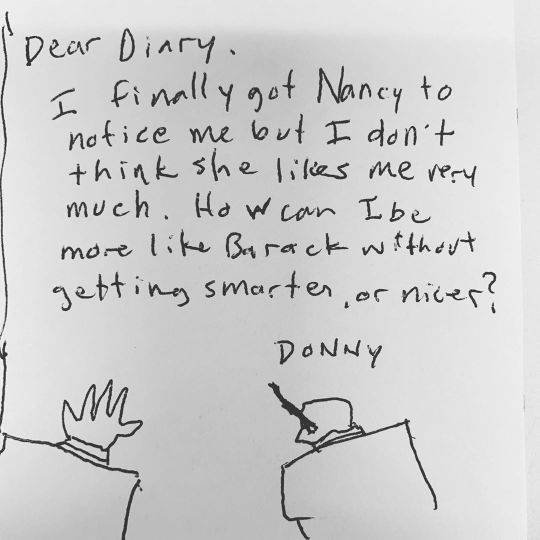 Dear Diary.
I finally got Nancy to
notice me but I don't
think she likes me very
much. How can I be
more like Barack without
getting smarter, or nicer?
DONNY